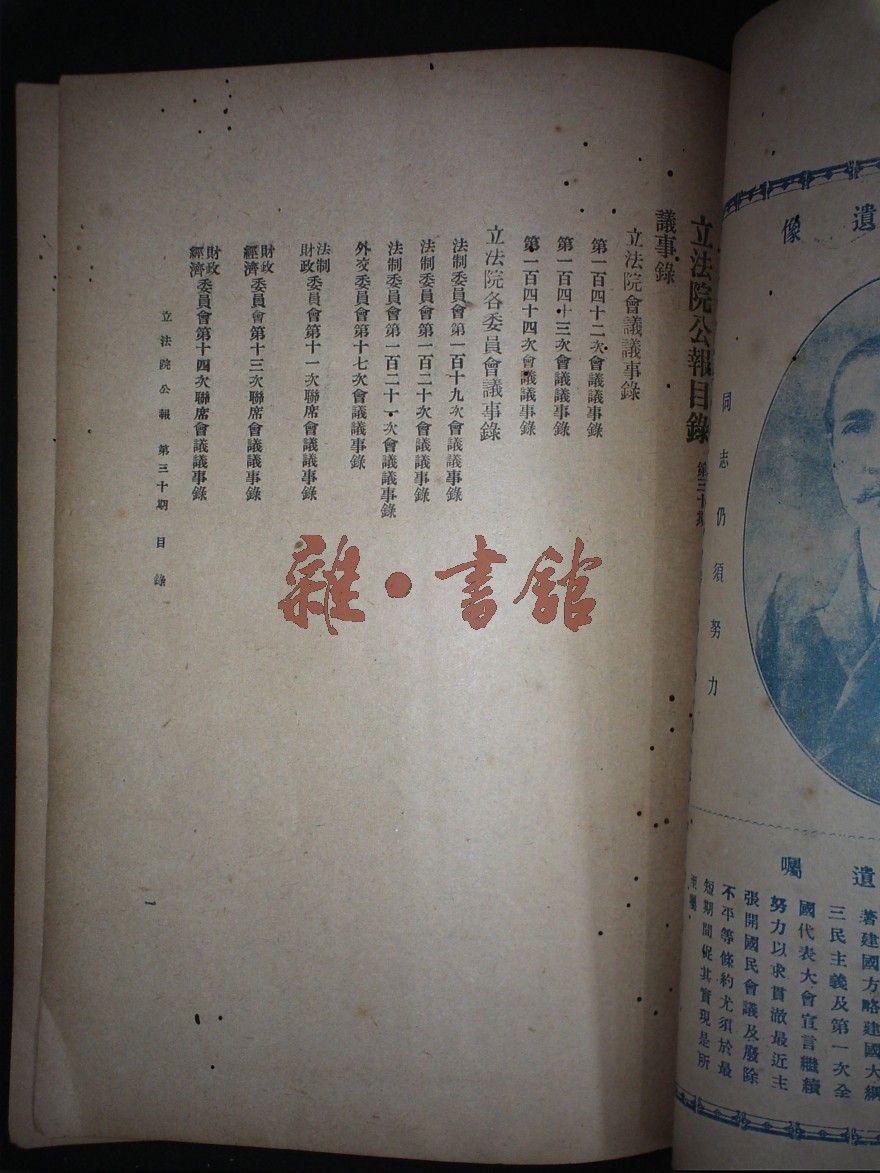 遺像
同志仍須努力
遺囑
著建國方略建國大綱
三民主義及第一次全
國代表大會宣言繼續
努力以求貫澈最近主
張開國民會議及廢除
不平等條約尤須於最
短期間促其實現是所
至囑
立法院公報目錄 第三十期
議事錄
立法院會議議事錄
第一百四十二次會議議事錄
第一百四十三次會議議事錄
第一百四十四次會議議事錄
立法院各委員會議事錄
法制委員會第一百十九次會議議事錄
法制委員會第一百二十次會議議事錄
法制委員會第一百二十一次會議議事錄
外交委員會第十七次會議議事錄
法制財政委員會第十一次聯席會議議事錄
財政經濟委員會第十三次聯席會議議事錄
財政經濟委員會第十四次聯席會議議事錄
立法院公報 第三十期 目錄
一
雜·書館